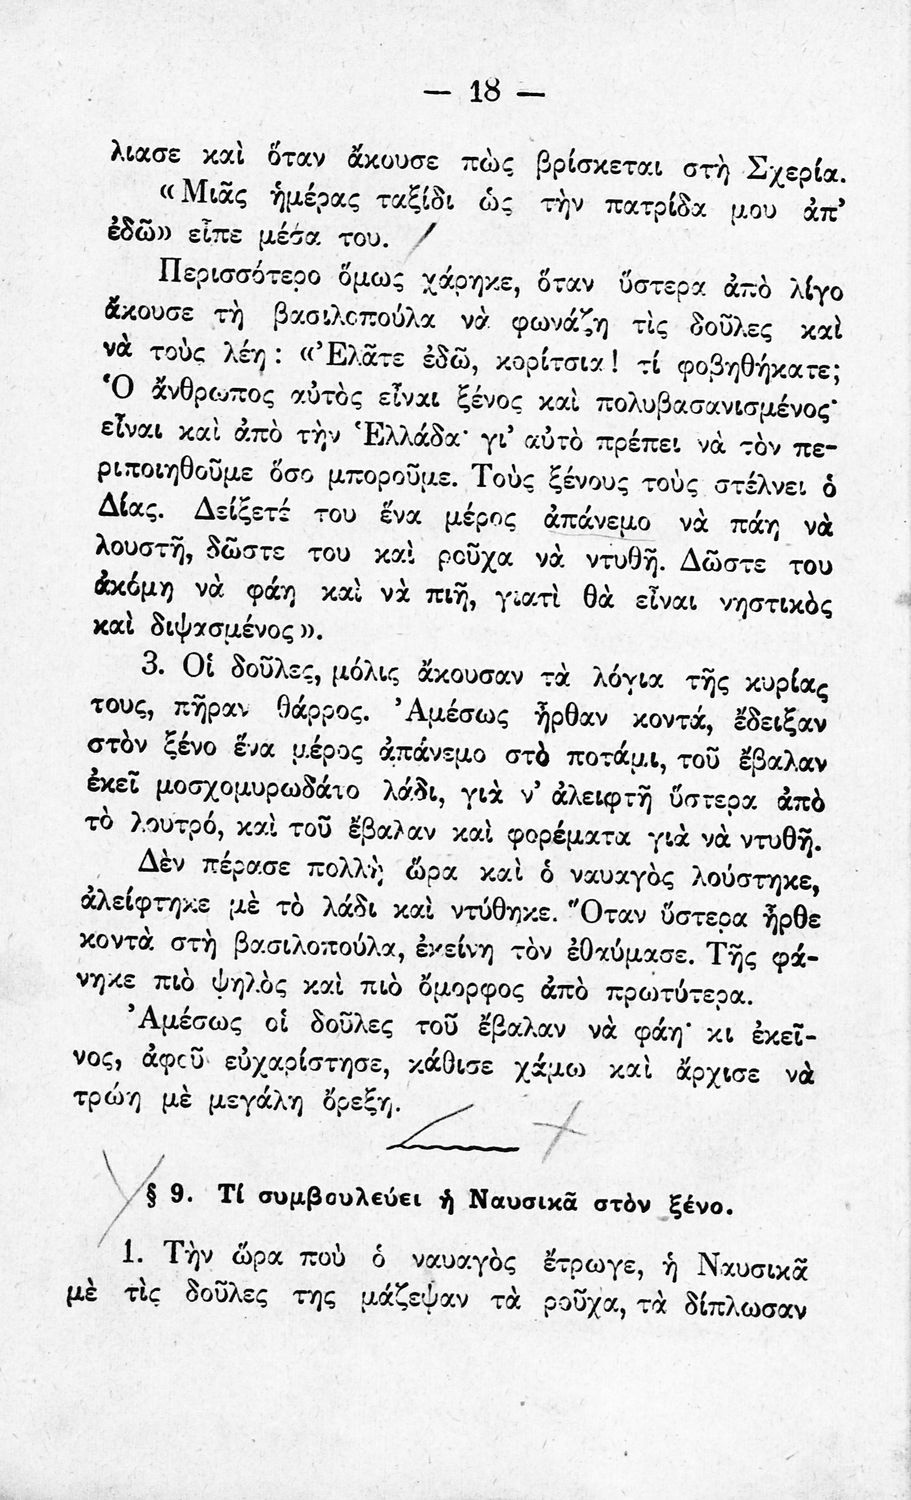 — 18 —
λιασε καὶ ὅταν ἄκουσε πὼς βρίσκεται στὴ Σχερία.
«Μιᾶς ἡμέρας ταξίδι ὡς τὴν πατρίδα μου ἀπ’
ἐδῶ» εἶπε μέσα του.
Περισσότερο ὅμως χάρηκε, ὅταν ὕστερα ἀπὸ λίγο
ἄκουσε τὴ βασιλοπούλα νὰ φωνάζῃ τὶς δοῦλες καὶ
νὰ τοὺς λέῃ: «Ἐλᾶτε ἐδῶ, κορίτσια! τί φοβηθήκατε;
Ὁ ἄνθρωπος αὐτὸς εἶναι ξένος καὶ πολυβασανισμένος·
εἶναι καὶ ἀπὸ τὴν Ἑλλάδα· γι’ αὐτὸ πρέπει νὰ τὸν πε-
ριποιηθοῦμε ὅσο μποροῦμε. Τοὺς ξένους τοὺς στέλνει ὁ
Δίας. Δείξετέ του ἕνα μέρος ἀπάνεμο νὰ πάῃ νὰ
λουστῇ, δῶστε του καὶ ροῦχα νὰ ντυθῇ. Δῶστε του
ἀκόμη νὰ φάῃ καὶ νὰ πιῇ, γιατὶ θὰ εἶναι νηστικὸς
καὶ διψασμένος».
3. Οἱ δοῦλες, μόλις ἄκουσαν τὰ λόγια τῆς κυρίας
τους, πῆραν θάρρος. Ἀμέσως ἦρθαν κοντά, ἔδειξαν
στὸν ξένο ἕνα μέρος ἀπάνεμο στὸ ποτάμι, τοῦ ἔβαλαν
ἐκεῖ μοσχομυρωδάτο λάδι, γιὰ ν’ ἀλειφτῇ ὕστερα ἀπὸ
τὸ λουτρό, καὶ τοῦ ἔβαλαν καὶ φορέματα γιὰ νὰ ντυθῇ.
Δὲν πέρασε πολλὴ ὥρα καὶ ὁ ναυαγὸς λούστηκε,
ἀλείφτηκε μὲ τὸ λάδι καὶ ντύθηκε. Ὅταν ὕστερα ἦρθε
κοντὰ στὴ βασιλοπούλα, ἐκείνη τὸν ἐθαύμασε. Τῆς φά-
νηκε πιὸ ψηλὸς καὶ πιὸ ὄμορφος ἀπὸ πρωτύτερα.
Ἀμέσως οἱ δοῦλες τοῦ ἔβαλαν νὰ φάῃ· κι ἐκεῖ-
νος, ἀφοῦ εὐχαρίστησε, κάθισε χάμω καὶ ἄρχισε νὰ
τρώῃ μὲ μεγάλη ὄρεξη.
§ 9. Τί συμβουλεύει ἡ Ναυσικᾶ στὸν ξένο.
1. Τὴν ὥρα ποὺ ὁ ναυαγὸς ἔτρωγε, ἡ Ναυσικᾶ
μὲ τὶς δοῦλες της μάζεψαν τὰ ροῦχα, τὰ δίπλωσαν